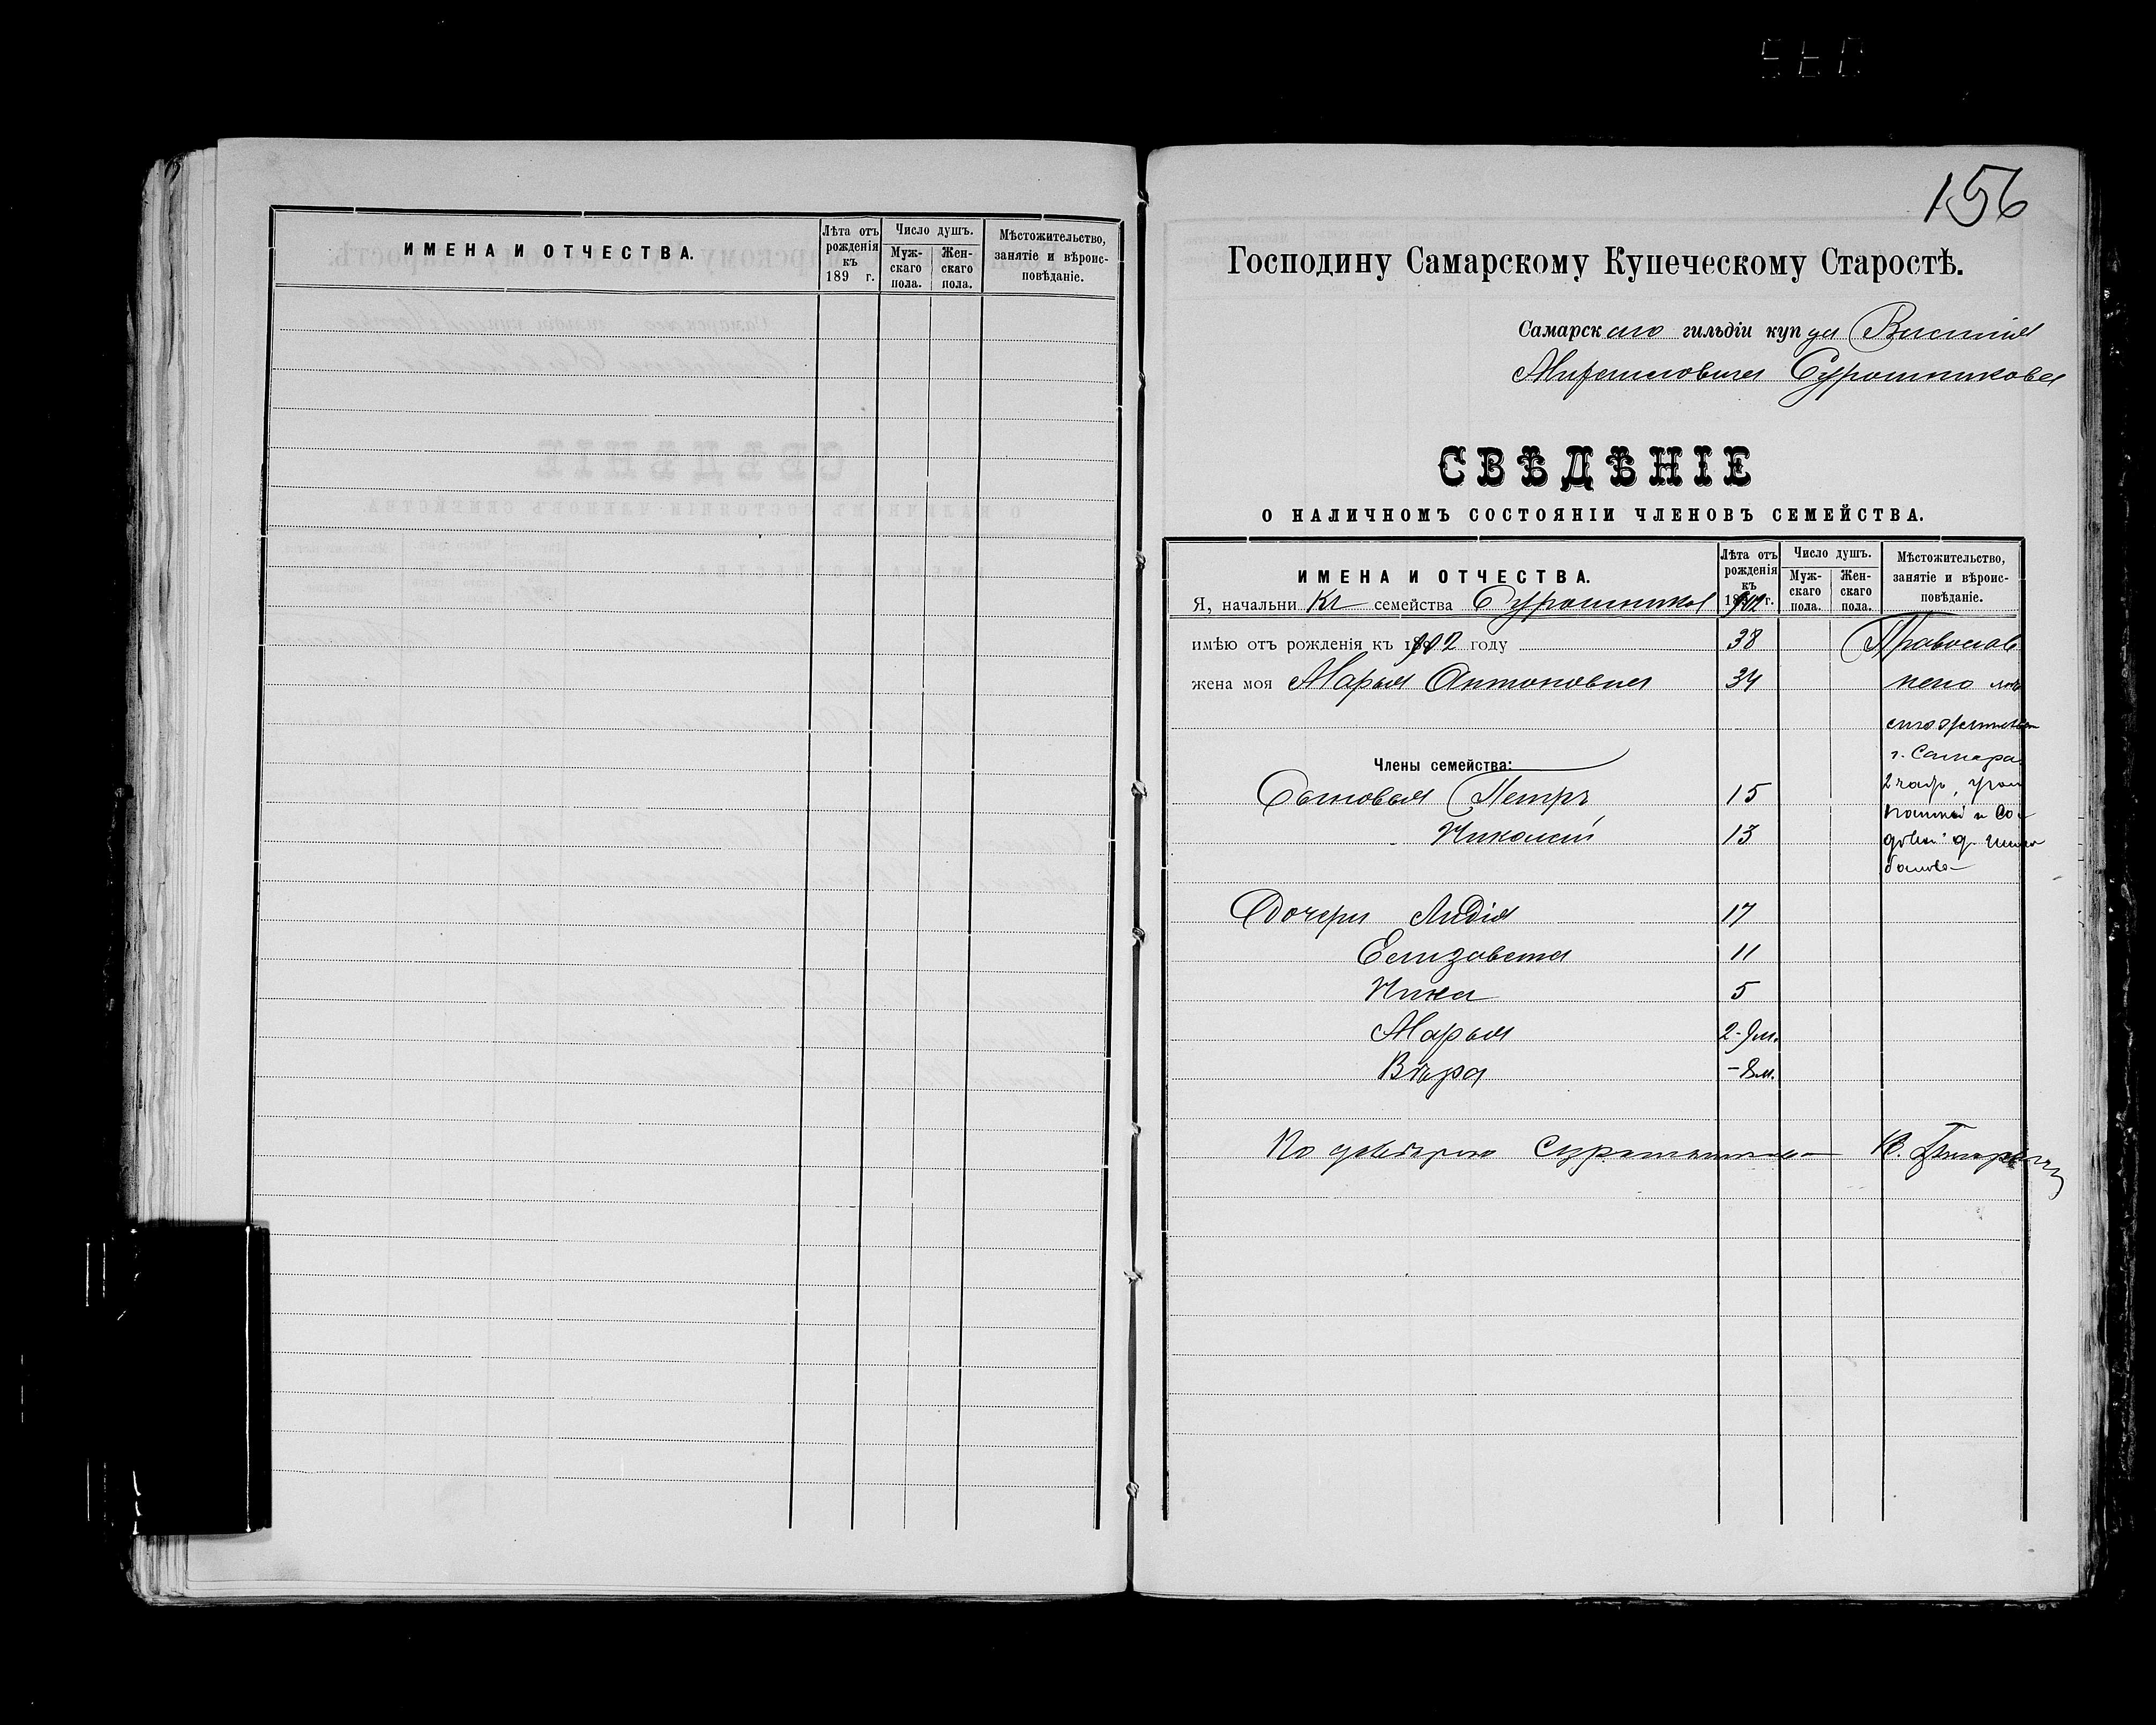 ИМЕНА И ОТЧЕСТВА.
Лѣта отъ рожденія къ 189 г.
Число душъ.
Муж-скаго пола.
Жен-скаго пола.
Мѣстожительство, занятіе и вѣроис-повѣданіе.
156
Господину Самарскому Купеческому Старостѣ.
Самарскаго гильдіи купца Василія
Сурошникова
СВѢДѢНІЕ
О НАЛИЧНОМЪ СОСТОЯНІИ ЧЛЕНОВЪ СЕМЕЙСТВА.
ИМЕНА И ОТЧЕСТВА.
Лѣта отъ рожденія къ 1912 г.
Число душъ.
Муж-скаго пола.
Жен-скаго пола.
Мѣстожительство, занятіе и вѣроис-повѣданіе.
Я, начальникъ семейства Сурошников
имѣю отъ рожденія къ 1912 году 38 Православ
жена моя Марья Антоновна 34 наго мѣ
стожительство
г. Самара
Члены семейства:
2 част,
Сыновья Петръ 15
Николай 13
Дочери Лидія 17
Елизавета 11
Нина 5
Марья 2-9м.
Вѣра -8м.
По довѣрію Сурошникова